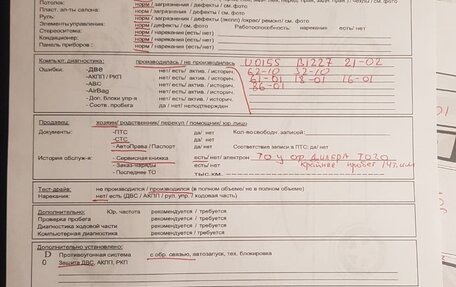 Потолок: норм / загрязнения / дефекты / см. фото
Пласт. эл-ты салона: норм / загрязнения / дефекты / см. фото
Руль: норм / загрязнения / дефекты (экспл) / окрас/ ремонт / см. фото
Элементы управления: норм / загрязнения / дефекты / см. фото Работоспособность: нарекания есть/ нет
Стереосистема: норм / нарекания (есть/ нет)
Кондиционер: норм / нарекания (есть/ нет)
Панель приборов: норм / нарекания (есть/ нет)
Компьют. диагностика: производилась / не производилась U0155 B1227 21-02
Ошибки: -Две нет/ есть/ актив. / историч. 62-10 32-10
-АКПП / РКП нет/ есть/ актив. / историч. 61-01 18-01 16-01
-ABC нет/ есть/ актив. / историч. 86-01
-AirBag нет/ есть/ актив. / историч.
- Доп. блоки упр-я нет/ есть/ актив. / историч.
- Соотв. пробега да/ нет/ неподтвержден
Продавец: хозяин/ родственник/ перекуп / помощник/ юр.лицо/
Документы: -ПТС да/ нет Кол-во свободн. записей:
-СТС да/ нет
-АвтоПрава / Паспорт да/ нет Соответствие записи в ПТС: да/ нет
История обслуж-я: - Сервисная книжка есть/ нет/ электрон ТО у оф. дилера
- Заказ-наряды есть/ нет Крайнее пробег
- Последнее ТО тыс.км.
Тест-драйв: не производился / производится (в полном объеме/ не в полном)
Нарекания: нет/ есть (ДВС / АКПП / рул. упр. / ходовая часть)
Дополнительно: Юр. частота рекомендуется / требуется
Проверка пробега рекомендуется / требуется
Диагностика ходовой части рекомендуется / требуется
Компьютерная диагностика рекомендуется / требуется
Дополнительно установлено:
D Противоугонная система с обр. связью, автозапуск, тех. блокировка
0 Защита ДВС, АКПП, РКП